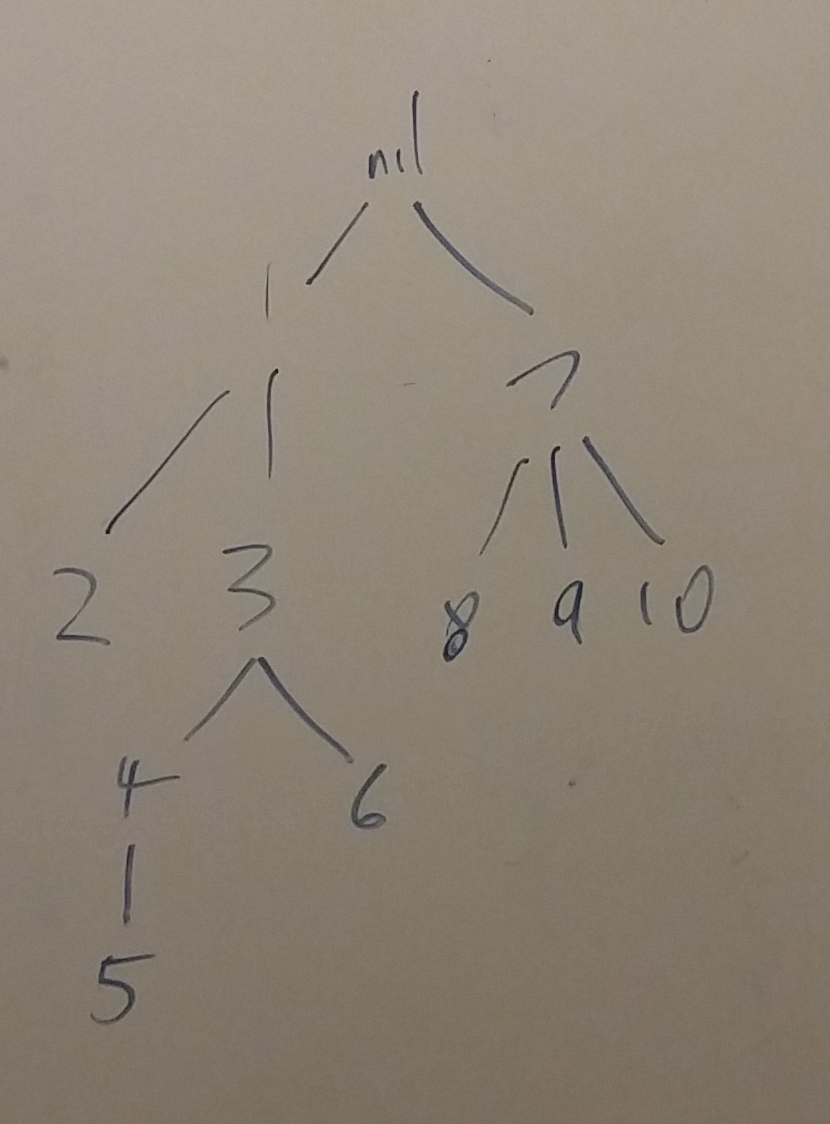 nil
1
7
2 3 8 9 10
4 6
5